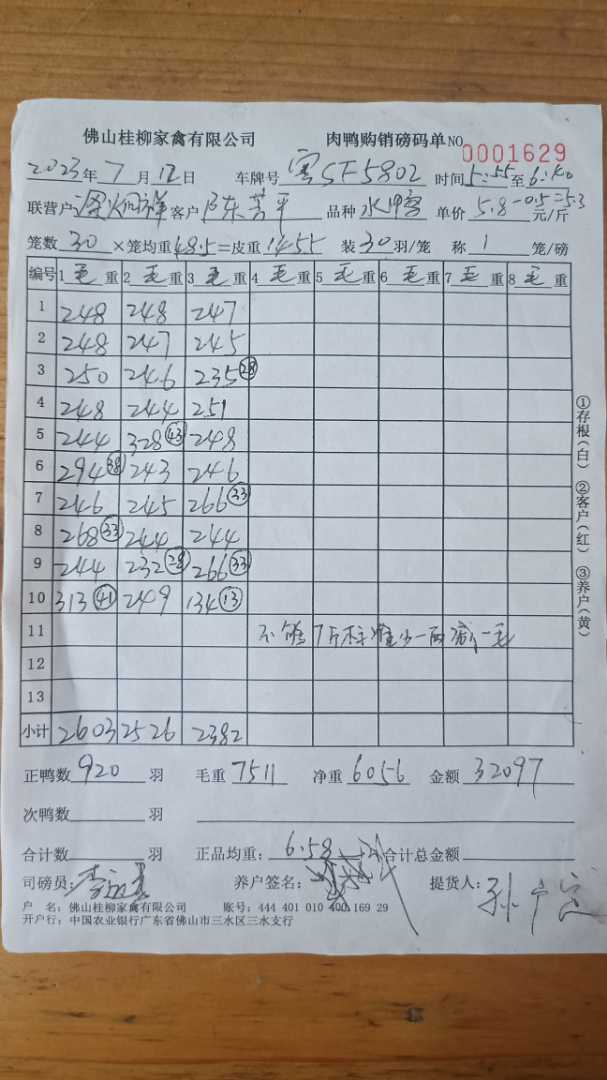 佛山桂柳家禽有限公司 肉鸭购销磅码单 NO 0001629
2023年 7 月 12 日 车牌号 粤SF5802 时间 5:55 至 6:
联营户 客户 陈芳平 品种 水 单价 5.8-0.5=5.3 元/斤
笼数 30 ×笼均重 48.5 =皮重 1455 装 30 羽/笼 称 1 笼/磅
编号 1 毛 重 2 毛 重 3 毛 重 4 毛 重 5 毛 重 6 毛 重 7 毛 重 8 毛 重
1 248 248 247
2 248 247 245
3 250 246 235 28
4 248 244 251
5 244 328 43 248
6 294 38 243 246
7 246 245 266 33
8 268 33 244 244
9 244 232 28 266 33
10 313 41 249 134 13
11 不够7斤标准少一两减一毛
12
13
小计 2603 2526 2382
正鸭数 920 羽 毛重 7511 净重 6056 金额 32097
次鸭数 羽
合计数 羽 正品均重: 6.58 合计总金额
司磅员: 李 养户签名: 提货人: 孙
户 名: 佛山桂柳家禽有限公司 账号: 444 401 010 400 169 29
开户行: 中国农业银行广东省佛山市三水区三水支行
①存根(白) ②客户(红) ③养户(黄)